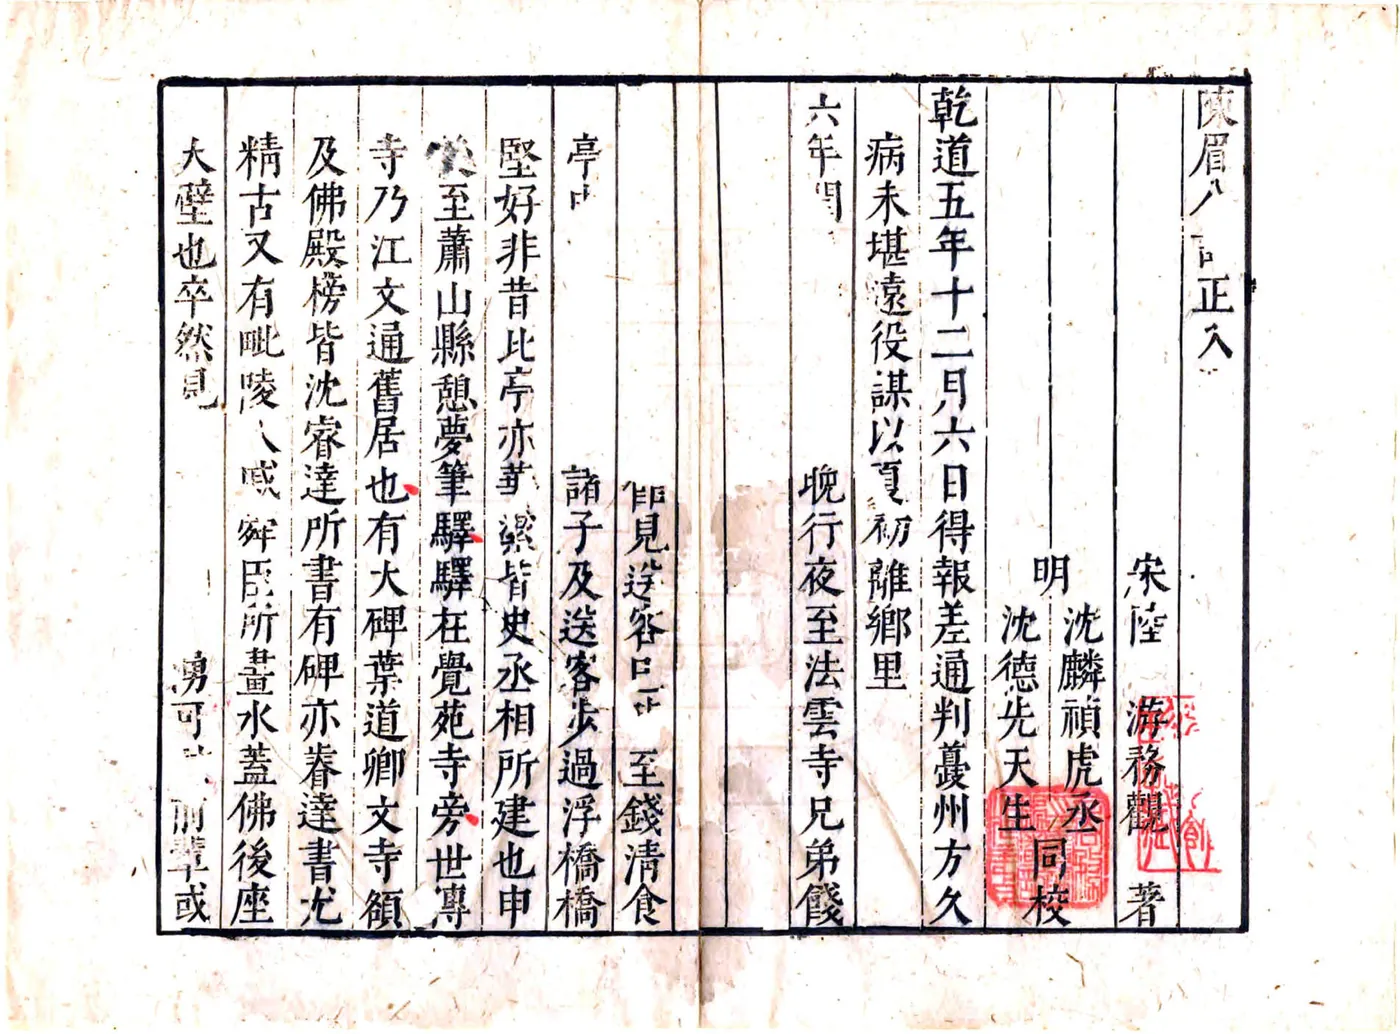 陳眉八 正入
宋陸 游務觀 著
明
沈麟禎虎丞
沈德先天生
同校
乾道五年十二月六日得報差通判夔州方久
病未堪遠役謀以夏初離鄉里
六年閏 晚行夜至法雲寺兄弟餞
見送客 至錢清食
亭 諸子及送客步過浮橋橋
堅好非昔比亭亦華潔皆史丞相所建也申
後至蕭山縣憩夢筆驛驛在覺苑寺旁世傳
寺乃江文通舊居也有大碑葉道卿文寺額
及佛殿榜皆沈睿達所書有碑亦睿達書尤
精古又有毗陵人戚舜臣所畫水蓋佛後座
大壁也卒然見 湧可 前輩或